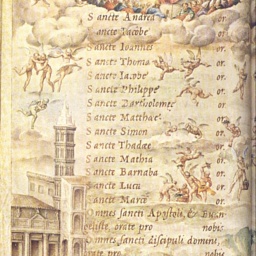 Sancte Andrea or.
Sancte Iacobe or.
Sancte Ioannes or.
Sancte Thoma or.
Sancte Iacobe or.
Sancte Philippe or.
Sancte Bartholomee or.
Sancte Matthae or.
Sancte Simon or.
Sancte Thadae or.
Sancte Mathia or.
Sancte Barnaba or.
Sancte Luca or.
Sancte Marce or.
Omnes sancti Apostoli, & Euan
gelistæ orate pro nobis.
Omnes sancti discipuli domini,
orate pro nobis.